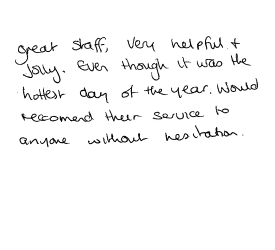 great staff, very helpful +
jolly. Even though it was the
hottest day of the year. Would
recomend their service to
anyone without hesitation.